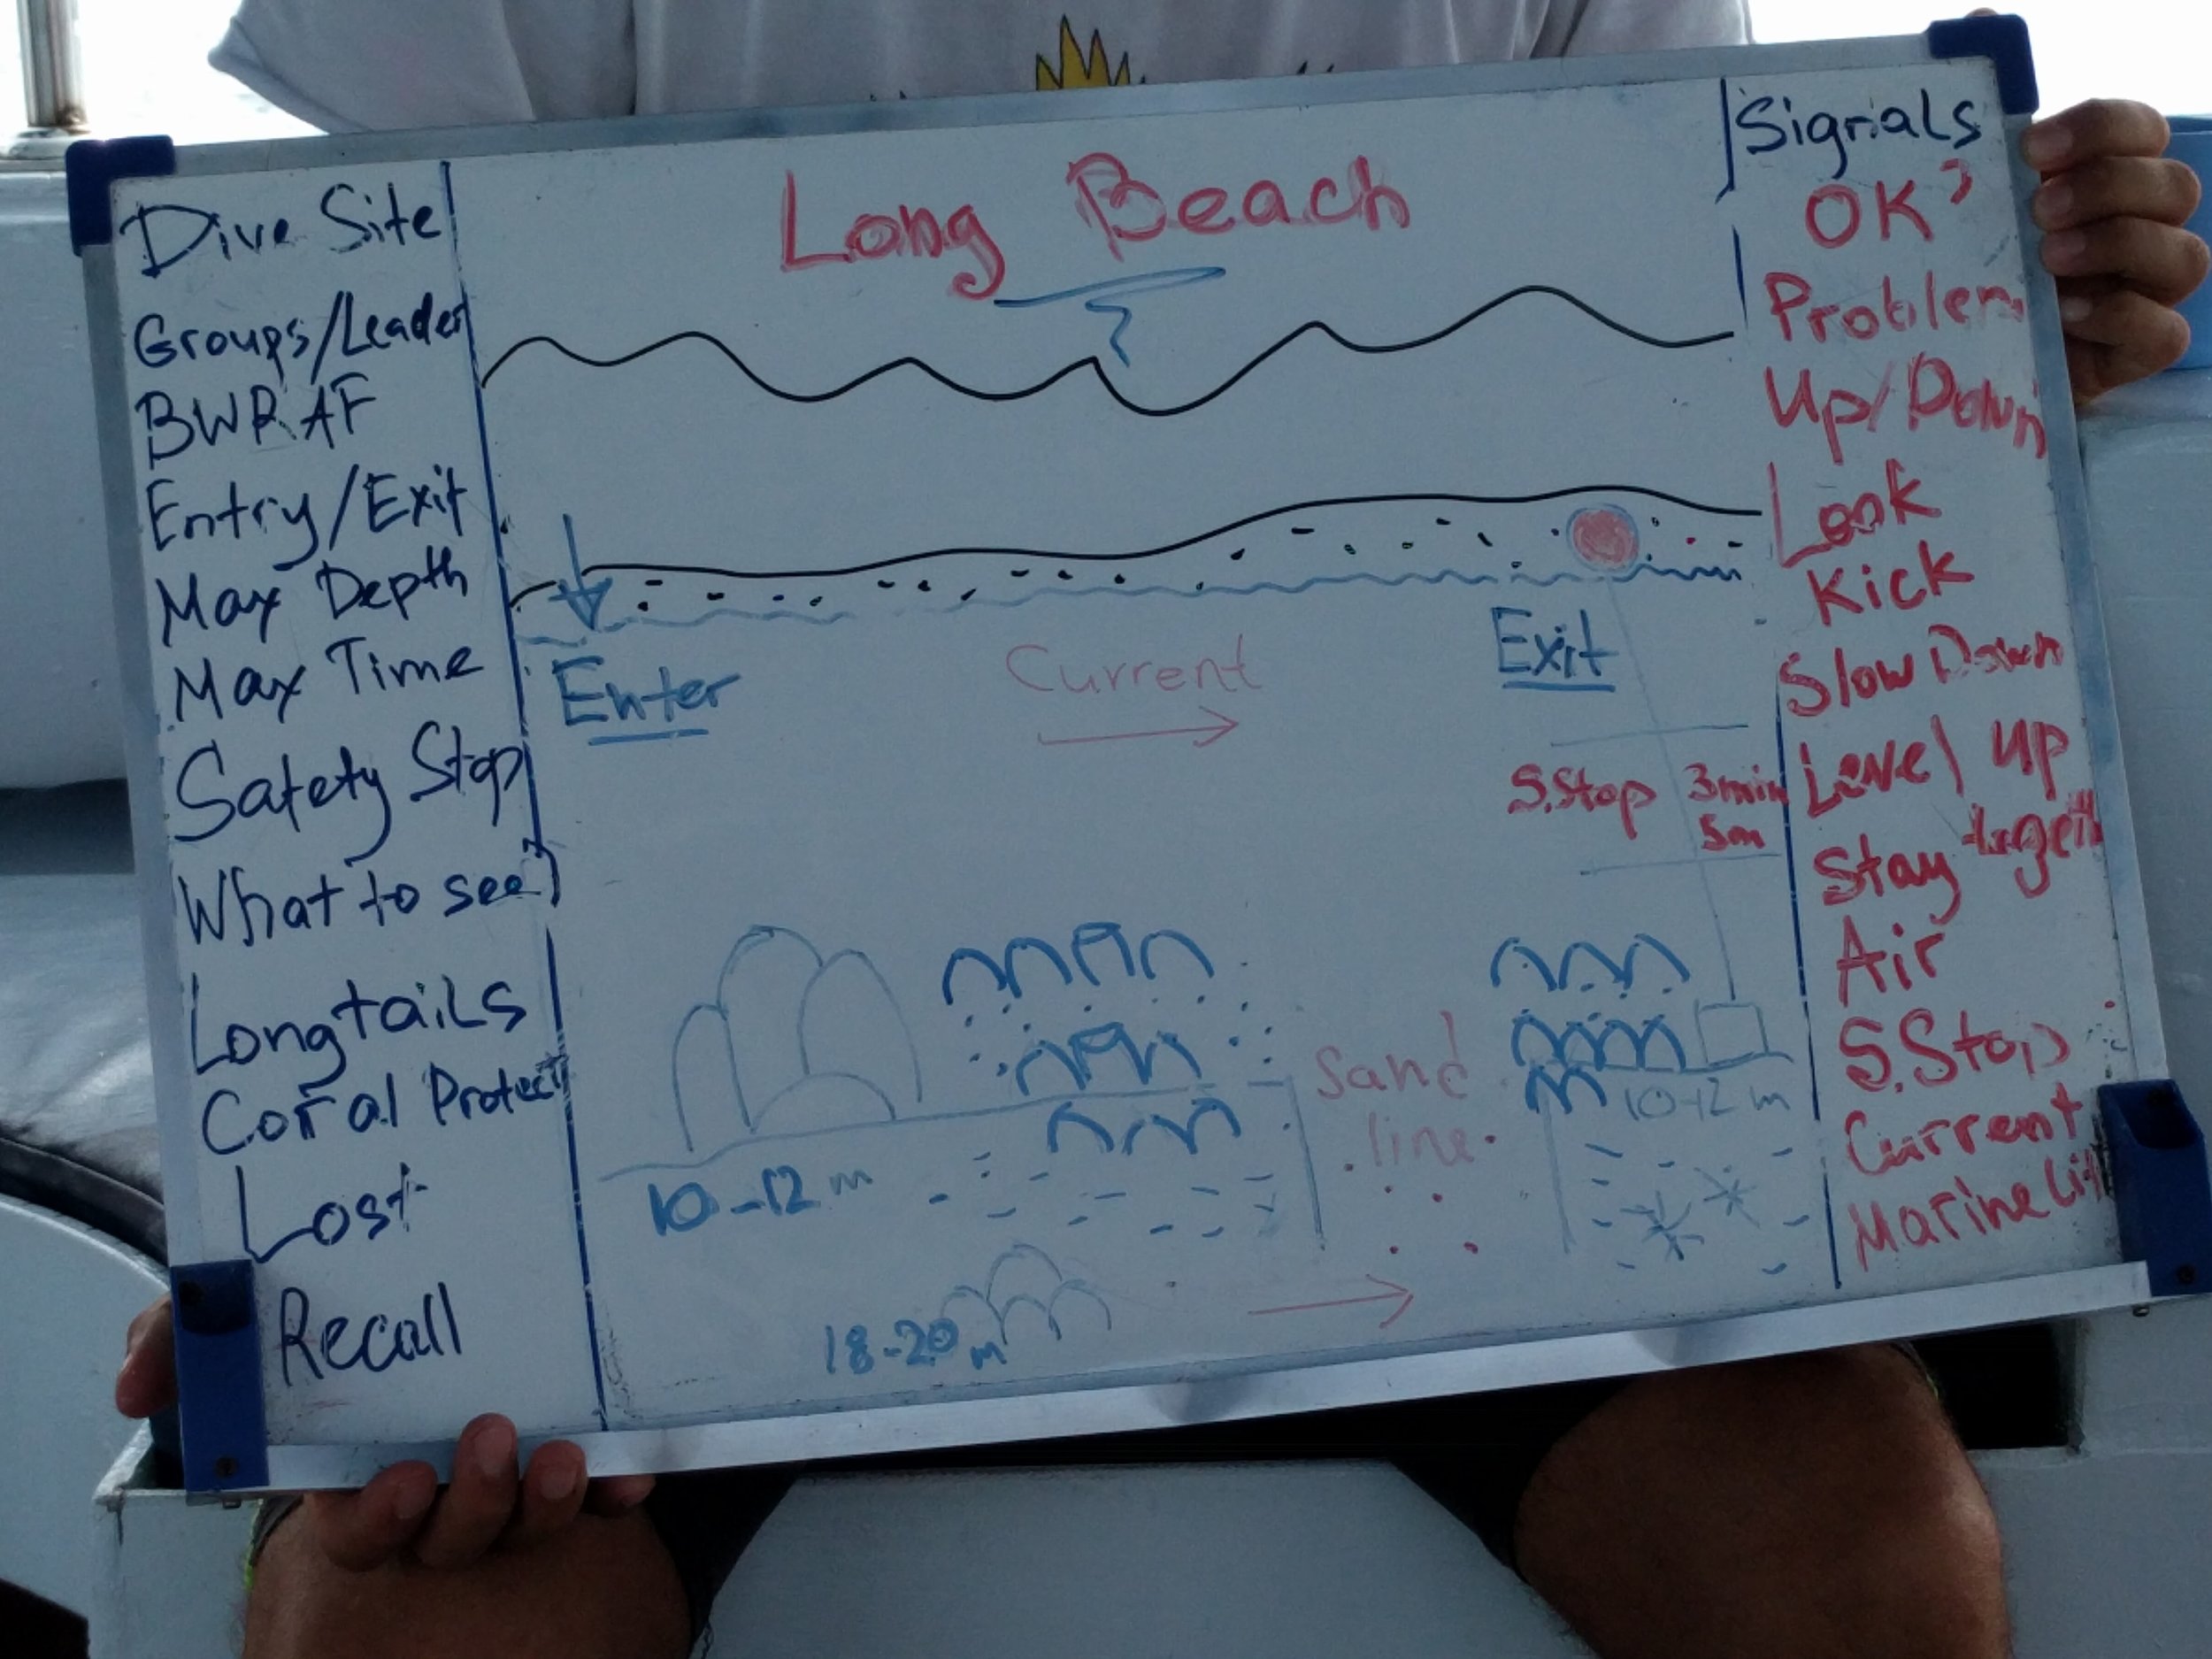 Dive Site
Groups/Leader
BWRAF
Entry/Exit
Max Depth
Max Time
Safety Stop
What to see?
Longtails
Coral Protect
Lost
Recall
Long Beach
Enter
Current
Exit
S.Stop 3min
5m
Sand
line
10-12 m
10-12 m
18-20 m
Signals
OK?
Problem
Up/Down
Look
Kick
Slow Down
Level up
Stay
Air
S.Stop
Current
Marine